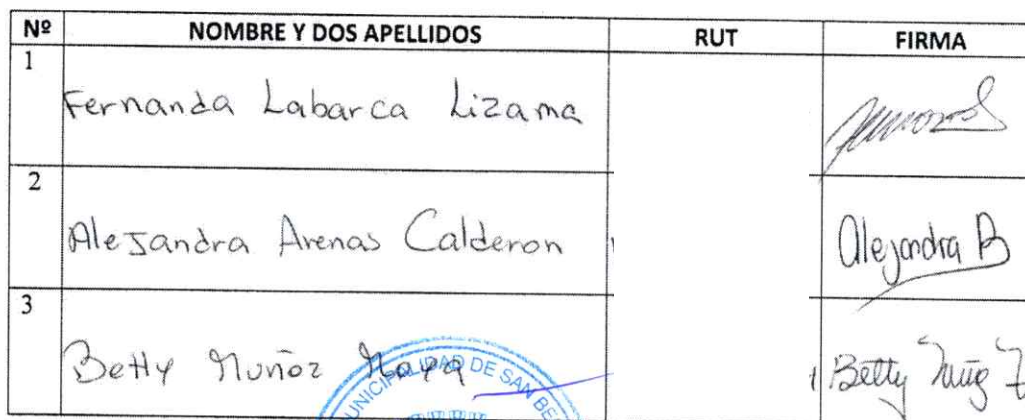 Nº NOMBRE Y DOS APELLIDOS RUT FIRMA
1
Fernanda Labarca Lizama
2
Alejandra Arenas Calderon Alejandra B
3
Betty Muñoz Betty
UNICIPALIDAD DE SAN BE